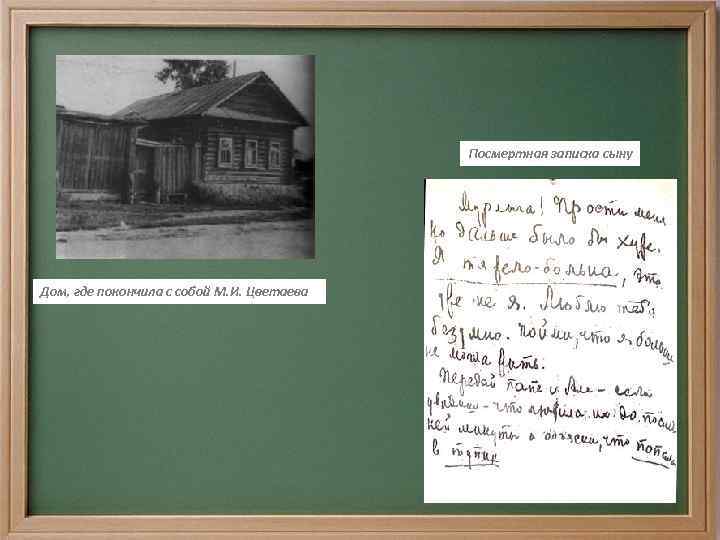 Посмертная записка сыну
Дом, где покончила с собой М.И. Цветаева
Мурлыга! Прости меня
Но дальше было бы хуже.
Я тяжело-больна, это
уже не я. Люблю тебя
безумно. Пойми, что я больше
не могла жить.
Передай папе и Але - если
увидишь - что любила их до послед
ней минуты и объясни, что попала
в тупик